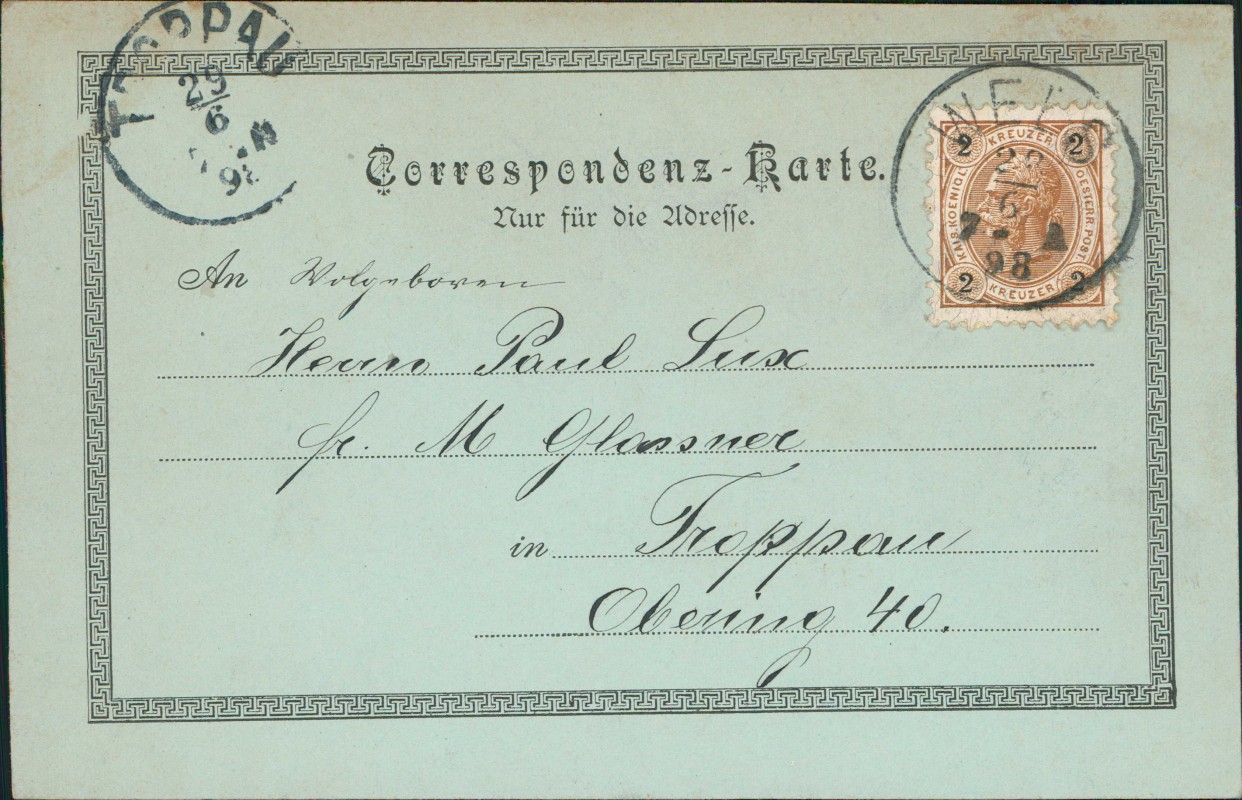 TROPPAU
29
6
98
WELS
28
6
7 - A
98
2 KREUZER 2
KAIS. KOENIGL. OESTERR. POST
2 KREUZER 2
Correspondenz-Karte.
Nur für die Adresse.
An Wolgeboren
Herrn Paul Lux
fr. M Glassner
in Troppau
Obering 40.